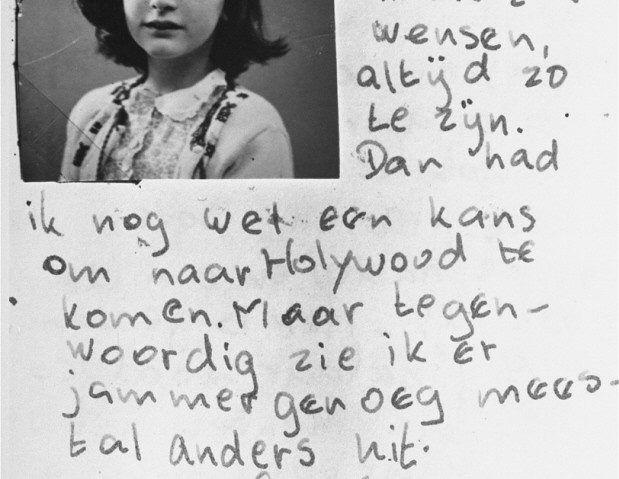 wensen,
altijd zo
te zijn.
Dan had
ik nog wel een kans
om naar Holywood te
komen. Maar tegen-
woordig zie ik er
jammer genoeg mees-
tal anders uit.